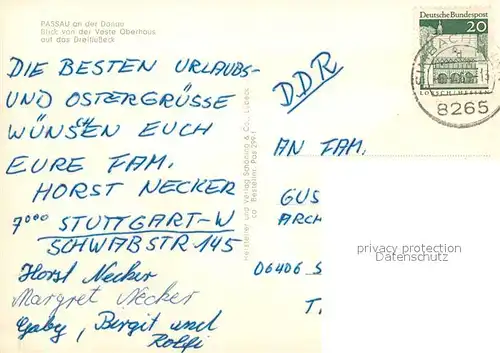 PASSAU an der Donau
Blick von der Veste Oberhaus
auf das Dreiflußeck
Deutsche Bundespost
20
LORSCH/HESSEN
SIMBACH
8265
DIE BESTEN URLAUBS-
UND OSTERGRÜSSE
WÜNSCHEN EUCH
EURE FAM.
HORST NECKER
7000 STUTTGART-W
SCHWABSTR 145
Horst Necker
Margret Necker
Gaby, Birgit und
Rolfi
Hersteller und Verlag Schöning & Co., Lübeck
Bestellnr. Pas 299
DDR
AN FAM.
GUS
ARCH
06406 S
T.
privacy protection
Datenschutz